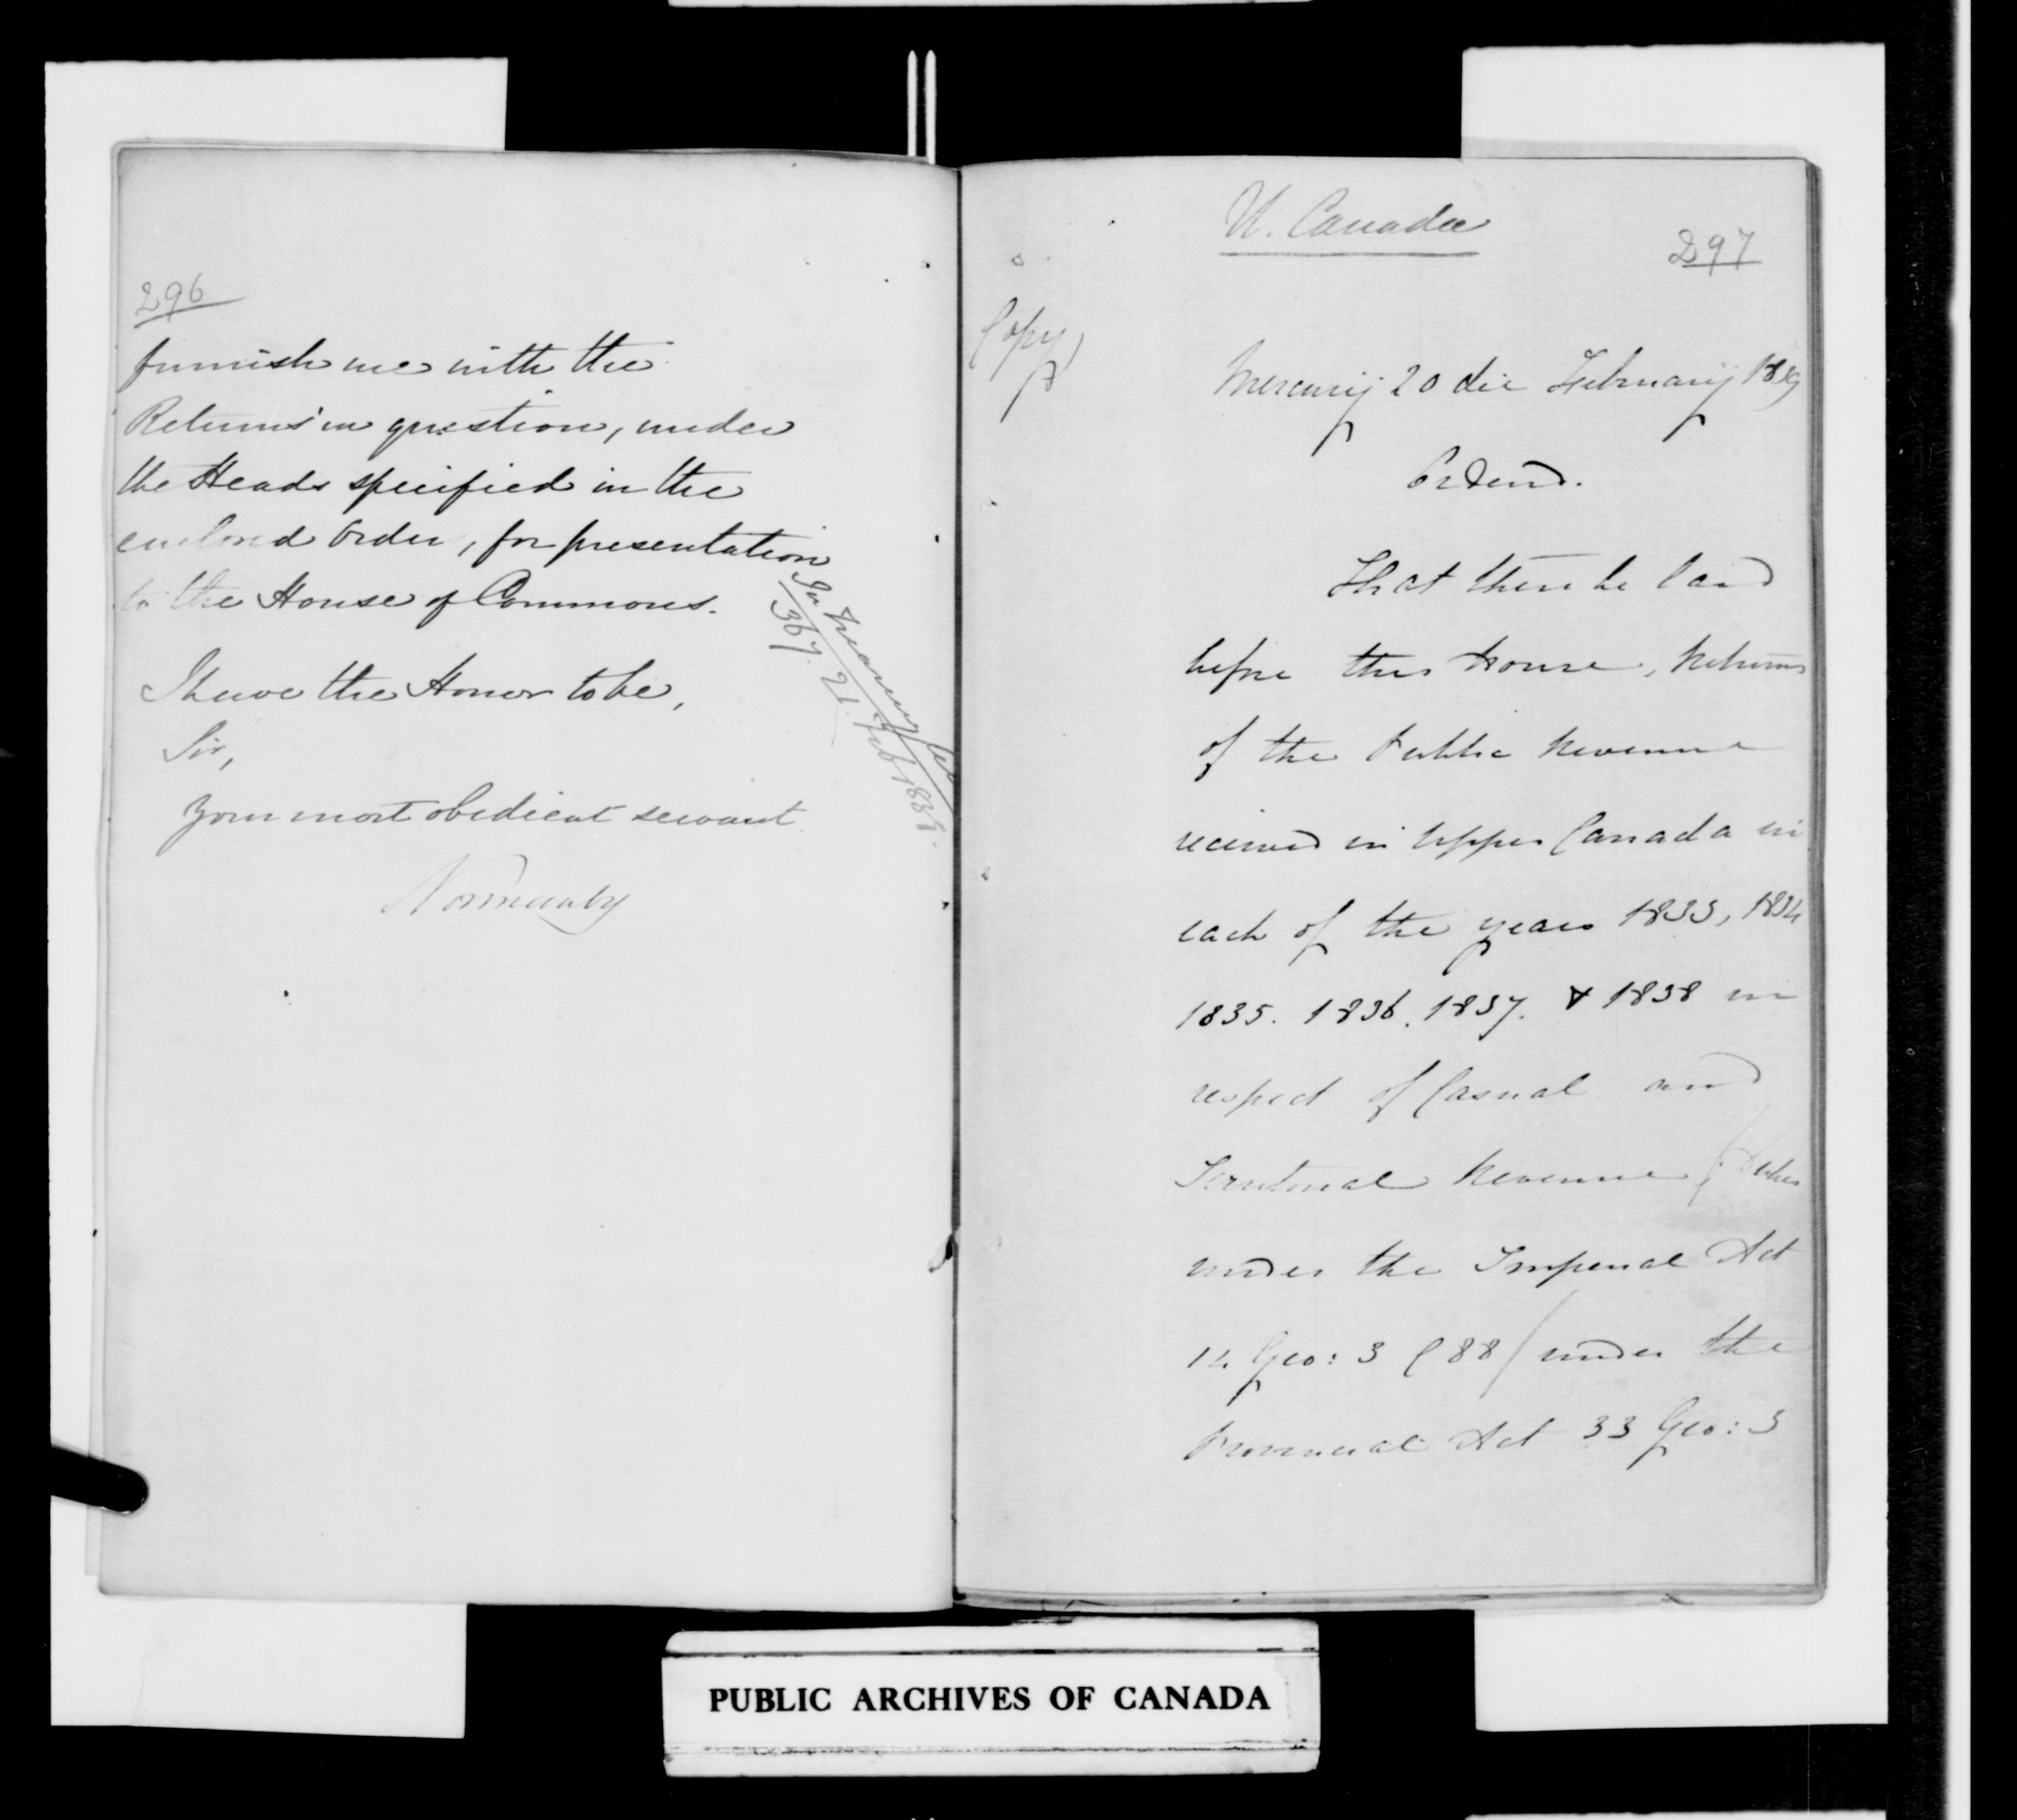 296
furnish me with the
Returns in question, under
the Heads specified in the
enclosed Order, for presentation
to the House of Commons.
I have the Honor to be,
Sir,
Your most obedient servant
Normanby
In Treasury
367. 21. Feb 1839.
U. Canada
297
Copy
Mercurij 20 die Februarij 1839
Ordered.
That there be laid
before this House, Returns
of the Public Revenue
received in Upper Canada in
each of the years 1833, 1834
1835. 1836. 1837. & 1838 in
respect of Casual and
Territorial Revenue / Duties
under the Imperial Act
14 Geo: 3 C 88 / under the
Provincial Act 33 Geo: 3
PUBLIC ARCHIVES OF CANADA